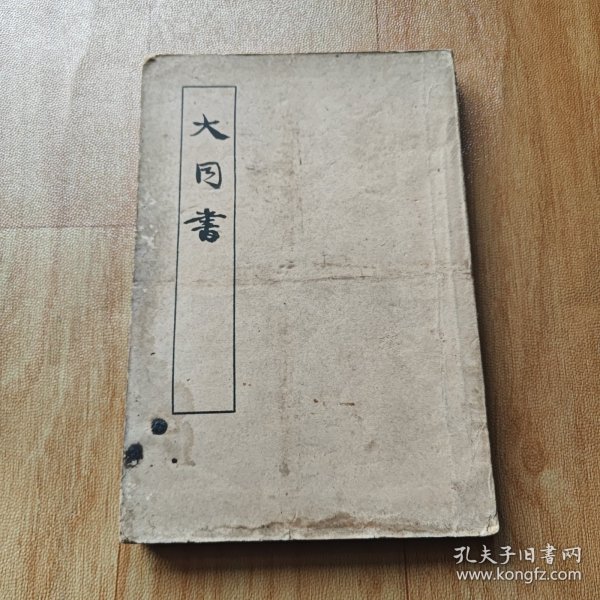 大同書
孔夫子旧书网
www.kongfz.com